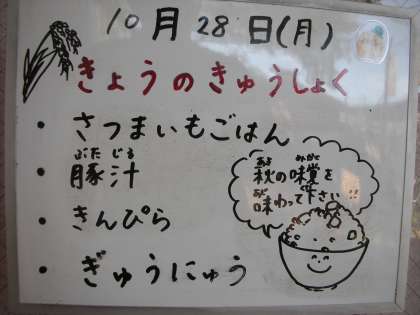 10月28日(月)
きょうのきゅうしょく
・さつまいもごはん
ぶた じる
・豚汁
・きんぴら
・ぎゅうにゅう
あき みかく
秋の味覚を
あじ
味わって下さい!!